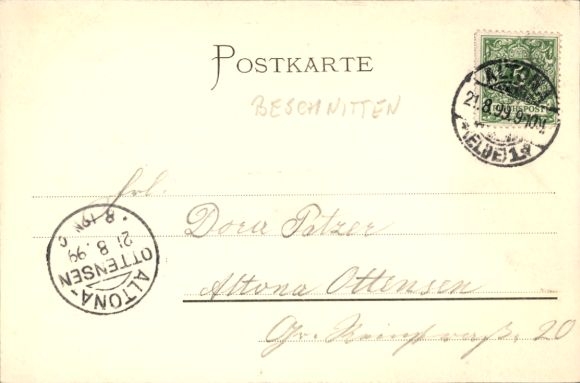 POSTKARTE
BESCHNITTEN
ALTONA
21.8.99.9-10N.
(ELBE) 1.
REICHSPOST
Frl.
Dora Patzer
Altona Ottensen
20
ALTONA-
OTTENSEN
21.8.99